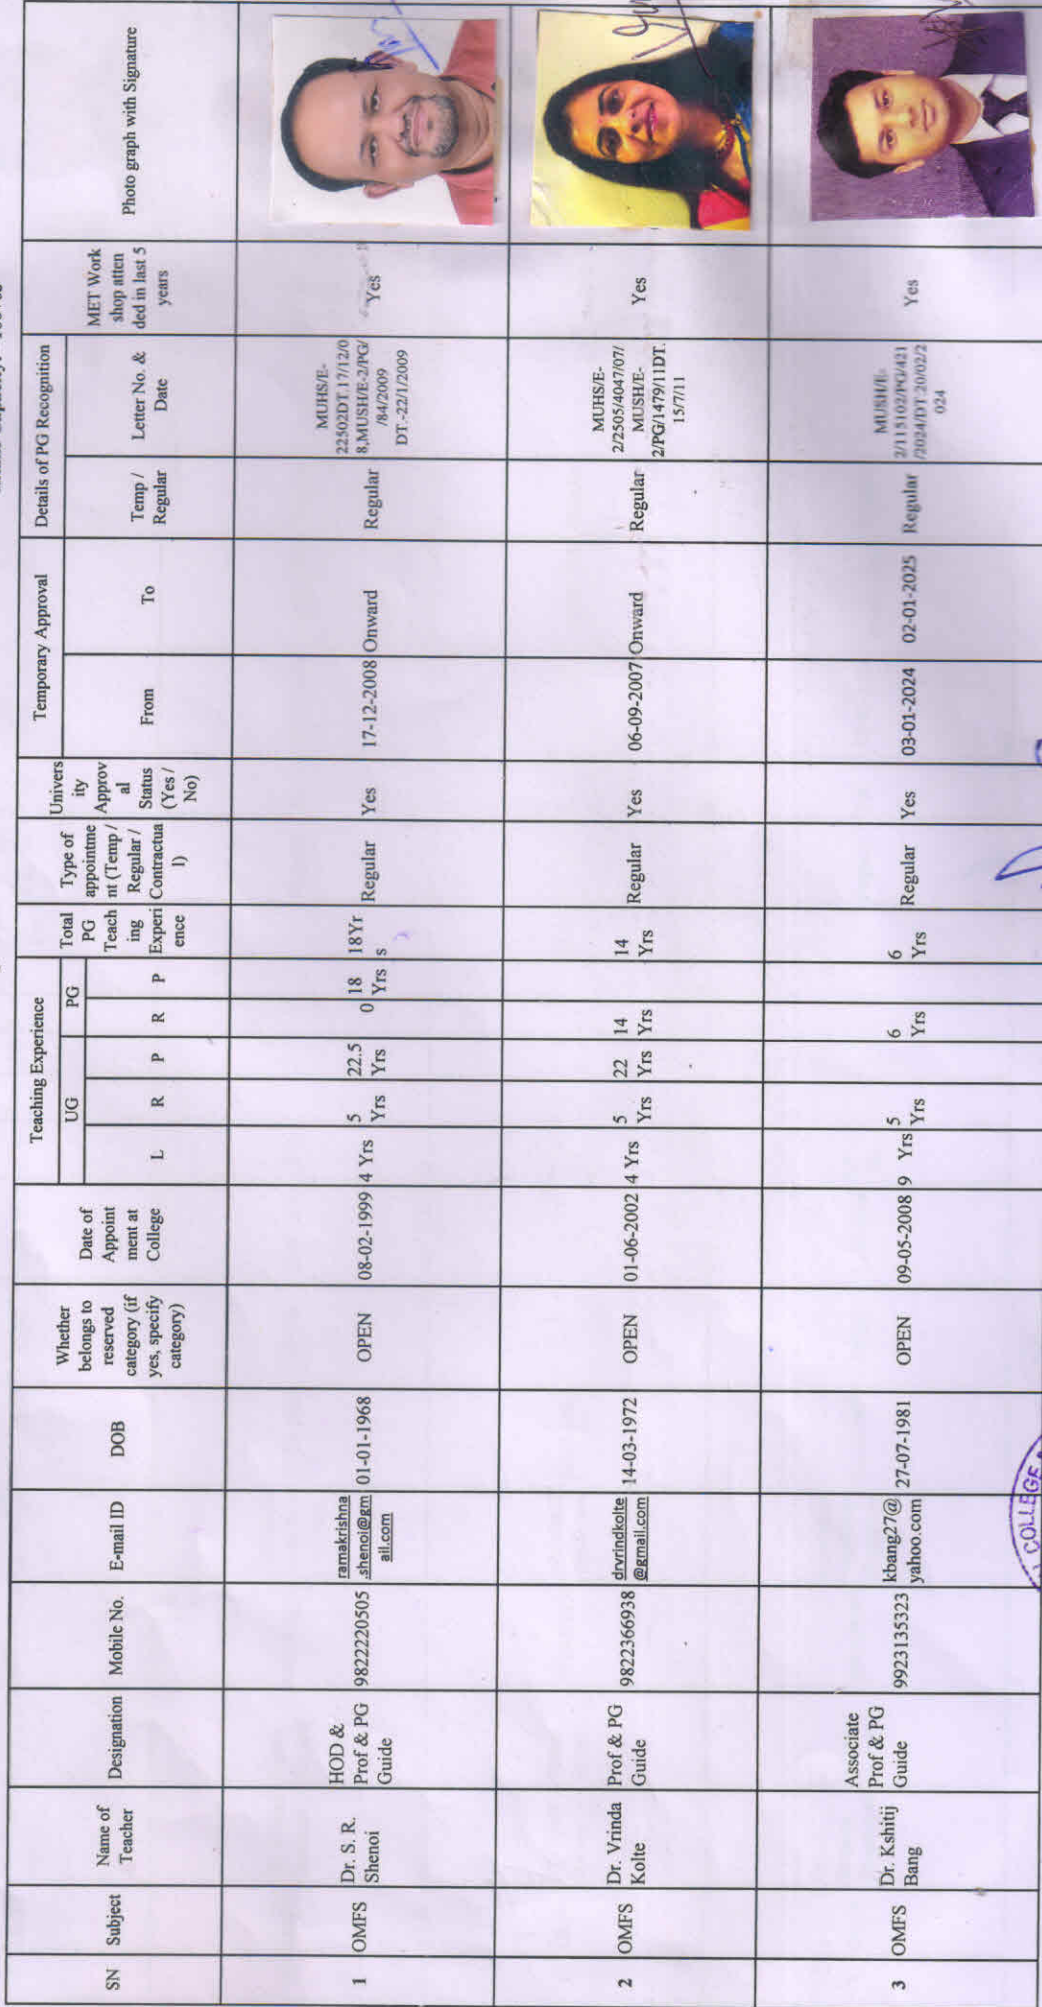 SN
Subject
Name of
Teacher
Designation
Mobile No.
E-mail ID
DOB
Whether
belongs to
reserved
category (if
yes, specify
category)
Date of
Appoint
ment at
College
Teaching Experience
UG
PG
L
R
P
R
P
Total
PG
Teach
ing
Experi
ence
Type of
appointme
nt (Temp /
Regular /
Contractua
l)
Univers
ity
Approv
al
Status
(Yes /
No)
Temporary Approval
From
To
Details of PG Recognition
Temp /
Regular
Letter No. &
Date
MET Work
shop atten
ded in last 5
years
Photo graph with Signature
1
OMFS
Dr. S. R.
Shenoi
HOD &
Prof & PG
Guide
9822220505
ramakrishna
.shenoi@gm
ail.com
01-01-1968
OPEN
08-02-1999
4 Yrs
5
Yrs
22.5
Yrs
0
18
Yrs
18Yr
s
Regular
Yes
17-12-2008
Onward
Regular
MUHS/E-
22502DT.17/12/0
8,MUSH/E-2/PG/
/84/2009
DT.-22/1/2009
Yes
2
OMFS
Dr. Vrinda
Kolte
Prof & PG
Guide
9822366938
drvrindkolte
@gmail.com
14-03-1972
OPEN
01-06-2002
4 Yrs
5
Yrs
22
Yrs
14
Yrs
14
Yrs
Regular
Yes
06-09-2007
Onward
Regular
MUHS/E-
2/2505/4047/07/
MUSH/E-
2/PG/1479/11DT.
15/7/11
Yes
3
OMFS
Dr. Kshitij
Bang
Associate
Prof & PG
Guide
9923135323
kbang27@
yahoo.com
27-07-1981
OPEN
09-05-2008
9 Yrs
5
Yrs
6
Yrs
6
Yrs
Regular
Yes
03-01-2024
02-01-2025
Regular
MUSH/E-
2/115102/PG/421
/2024/DT.20/02/2
024
Yes
COLLEGE